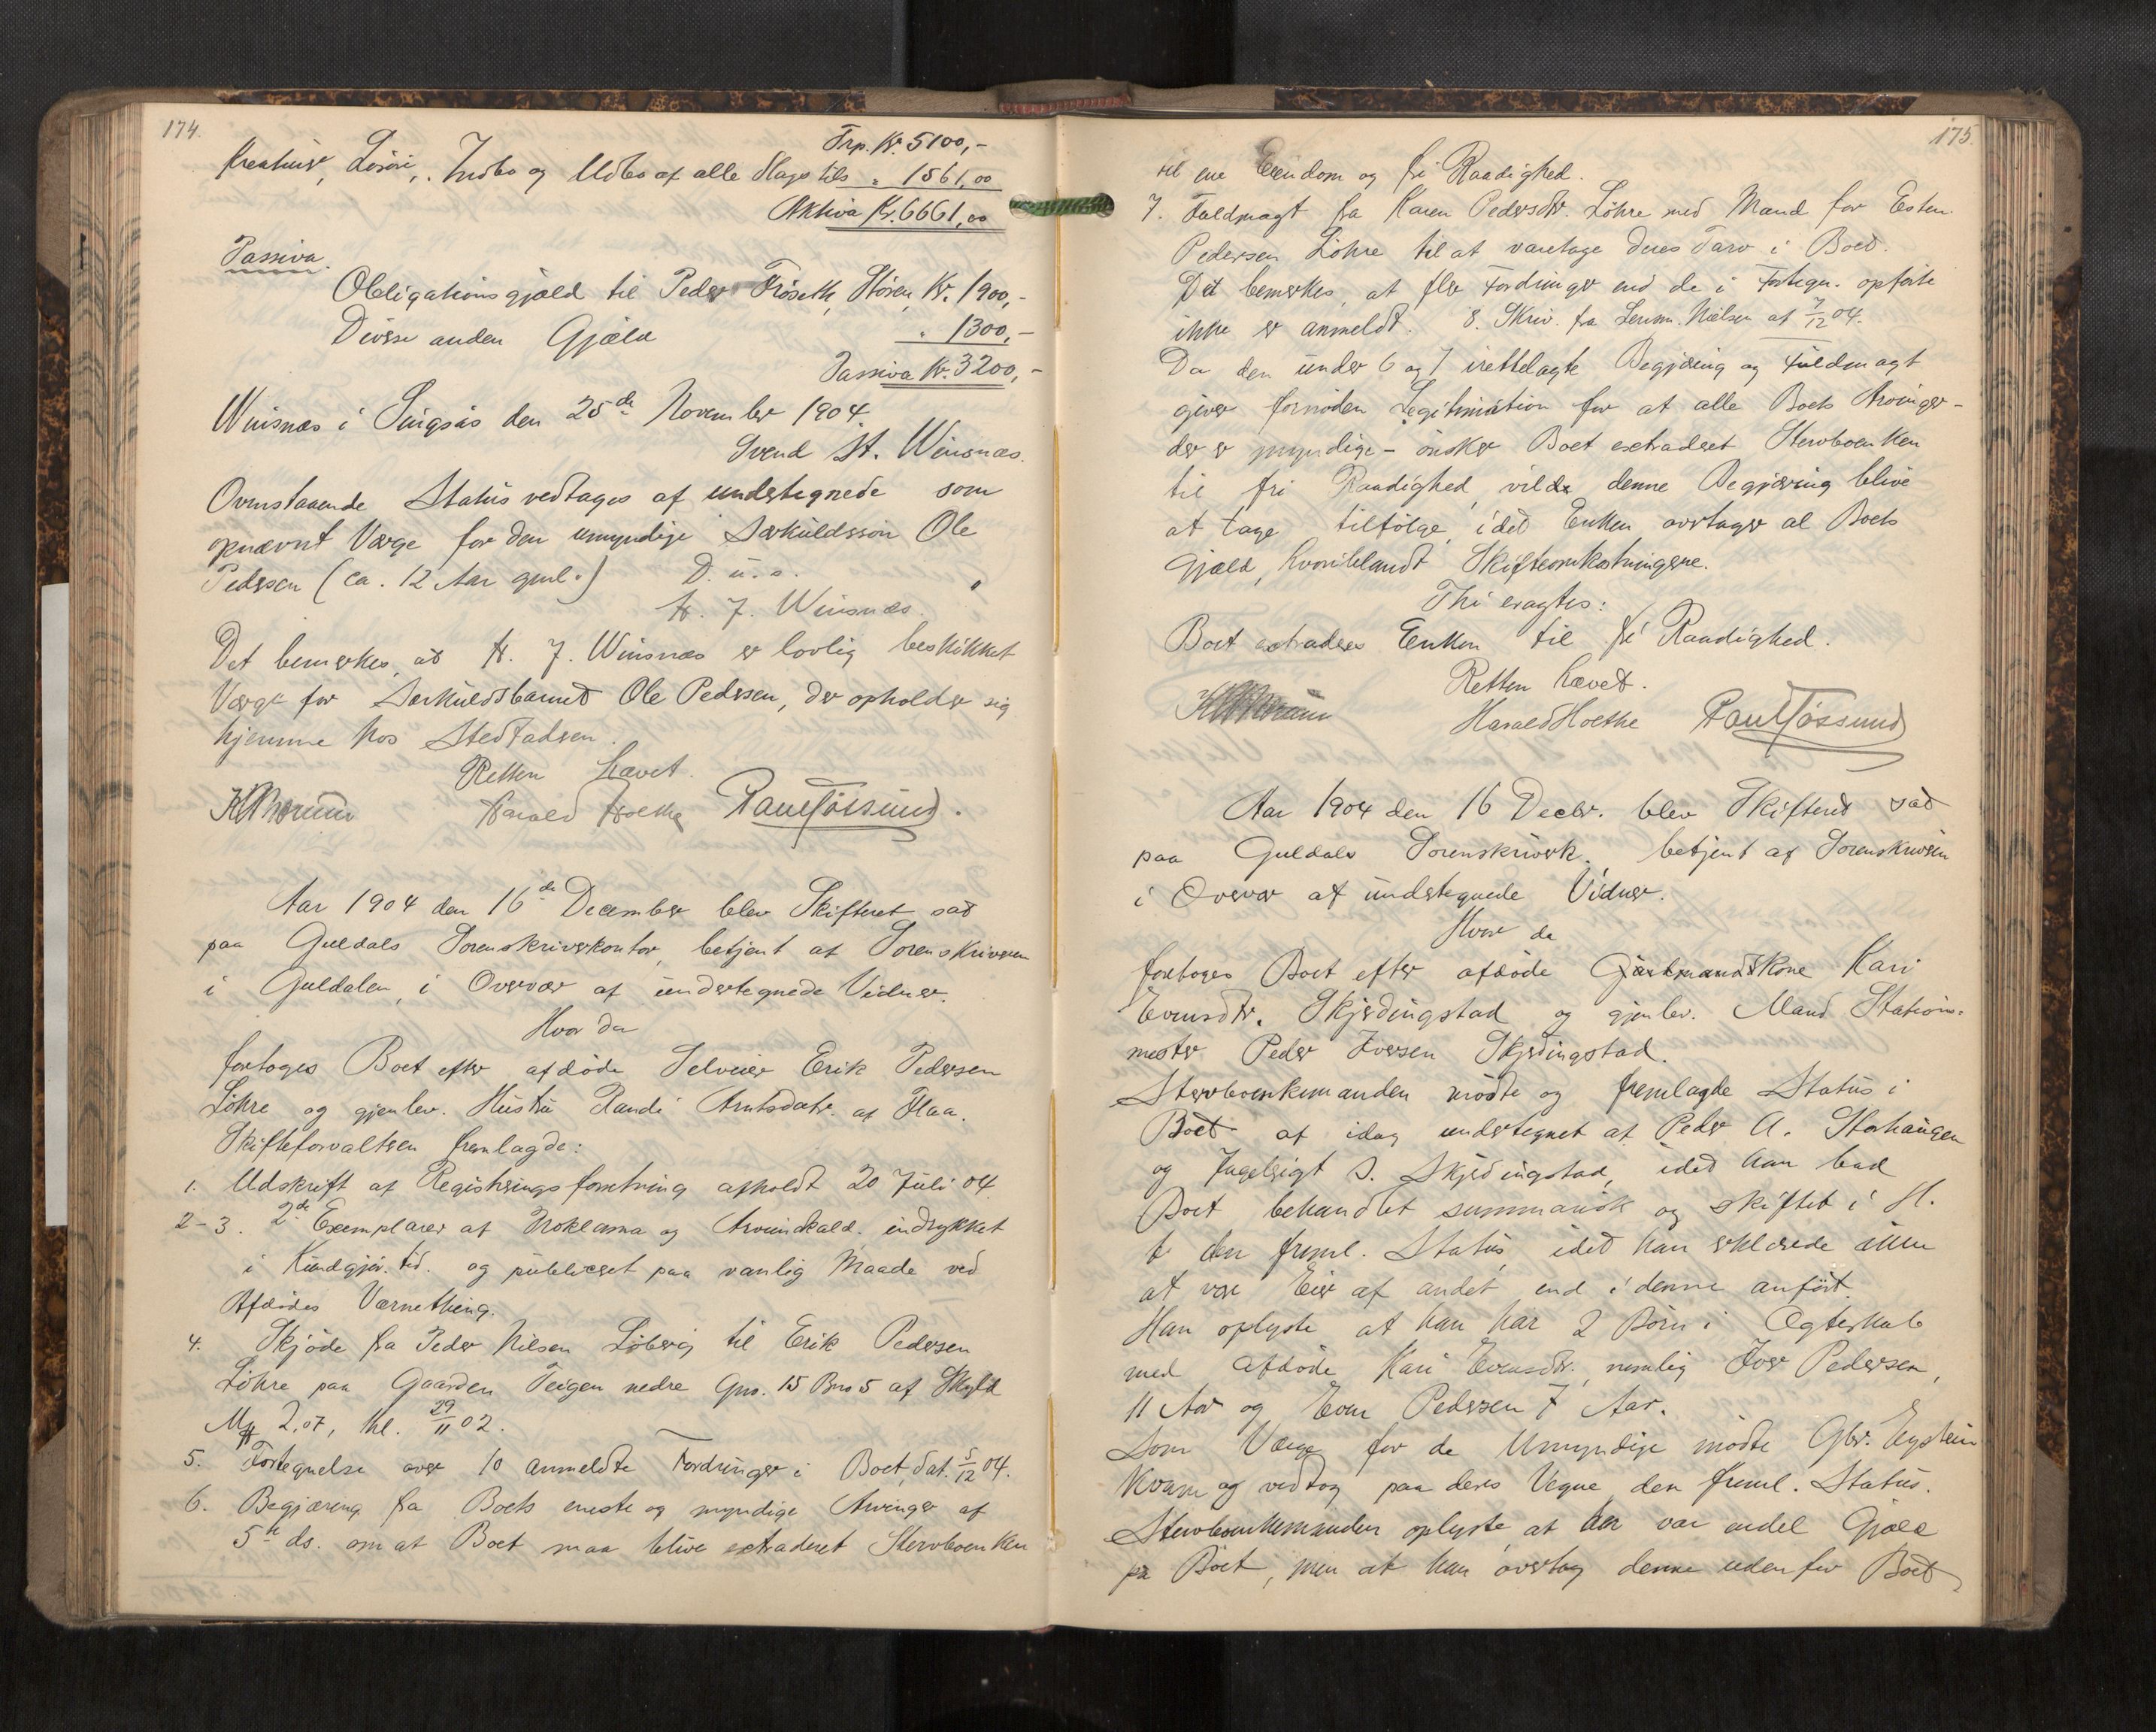 174.
Trp. Kr. 5100,-
Kreaturer, Løsøre, Indbo og Udbo af alle Slags tils. „ 1561,00
Aktiva Kr. 6661,00
Passiva.
Obligationsgjæld til Peder Frøseth, Støren, Kr. 1900,-
Diverse anden Gjæld „ 1300,-
Passiva Kr. 3200,-
Winsnæs i Singsås den 25de November 1904.
Svend St. Winsnæs.
Ovenstaaende Status vedtages af undertegnede som
opnævnt Værge for den umyndige Særkuldssøn Ole
Pedersen (ca. 12 Aar gml.) D. u. s.
H. J. Winsnæs.
Det bemerkes, at H. J. Winsnæs er lovlig beskikket
Værge for Særkuldsbarnet Ole Pedersen, der opholder sig
hjemme hos Stedfadren.
Retten hævet.
Harald Hoethe Paul Fossund.
Aar 1904 den 16de December blev Skifteret sat
paa Guldals Sorenskriverkontor, betjent af Sorenskriveren
i Guldalen, i Overvær af undertegnede Vidner.
Hvor da
foretoges Boet efter afdøde Selveier Erik Pedersen
Løhre og gjenlev. Hustru Randi Arntsdatr. af Flaa.
Skifteforvalteren fremlagde:
1. Udskrift af Registreringsforretning afholdt 20 Juli 04.
2-3. 2de Exemplarer af Proklama og Arveindkald. indrykket
i Kundgjør. tid. og publiceret paa vanlig Maade ved
Afdødes Værnething.
4. Skjøde fra Peder Nilsen Løberg til Erik Pedersen
Løhre paa Gaarden Teigen nedre Gno. 15 Bno 5 af Skyld
Mk 2,07, thl. 29/11 02.
5. Fortegnelse over 10 anmeldte Fordringer i Boet, dat. 5/12 04.
6. Begjæring fra Boets eneste og myndige Arvinger af
5te ds. om at Boet maa blive extraderet Stervboenken
175.
til ene Eiendom og fri Raadighed.
7. Fuldmagt fra Karen Pedersdtr. Løhre med Mand for Esten
Pedersen Løhre til at varetage deres Tarv i Boet.
Det bemerkes, at fler Fordringer end de i Fortegn. opførte
ikke er anmeldt. 8. Skriv. fra Lensm. Nielsen af 7/12 04.
Da den under 6 og 7 irettelagte Begjæring og Fuldmagt
giver fornøden Legitimation for at alle Boets Arvinger -
der er myndige - ønsker Boet extraderet Stervboenken
til fri Raadighed, vilde denne Begjæring blive
at tage tilfølge, idet Enken overtager al Boets
Gjæld, hvoriblandt Skifteomkostningerne.
Thi eragtes:
Boet extraderes Enken til fri Raadighed.
Retten hævet.
Harald Hoethe Paul Fossund
Aar 1904 den 16 Decbr. blev Skifteret sat
paa Guldals Sorenskriverk. betjent af Sorenskriveren
i Overvær af undertegnede Vidner.
Hvor da
foretoges Boet efter afdøde Gaardmandskone Kari
Evensdtr. Skjerdingstad og gjenlev. Mand Stations-
mester Peder Iversen Skjerdingstad.
Stervboenkemanden mødte og fremlagde Status i
Boet af idag undertegnet af Peder A. Storhaugen
og Ingebrigt S. Skjerdingstad, idet han bad
Boet behandlet summarisk og skiftet i H.
t. den freml. Status, idet han erklærede ikke
at være Eier af andet end i denne anført.
Han oplyste at han har 2 Børn i Ægteskab
med afdøde Kari Evensdtr., nemlig Iver Pedersen,
11 Aar og Even Pedersen 7 Aar.
Som Værge for de Umyndige mødte Gbr. Eystein
Kvam og vedtog paa deres Vegne den freml. Status.
Stervboenkemanden oplyste, at der var endel Gjæld
på Boet, men at han overtog denne udenfor Boet